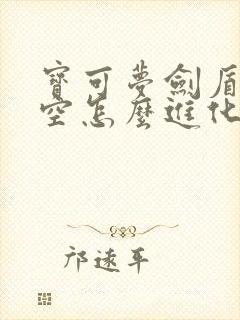 寶可夢劍盾
空怎麼進化
邝逺平